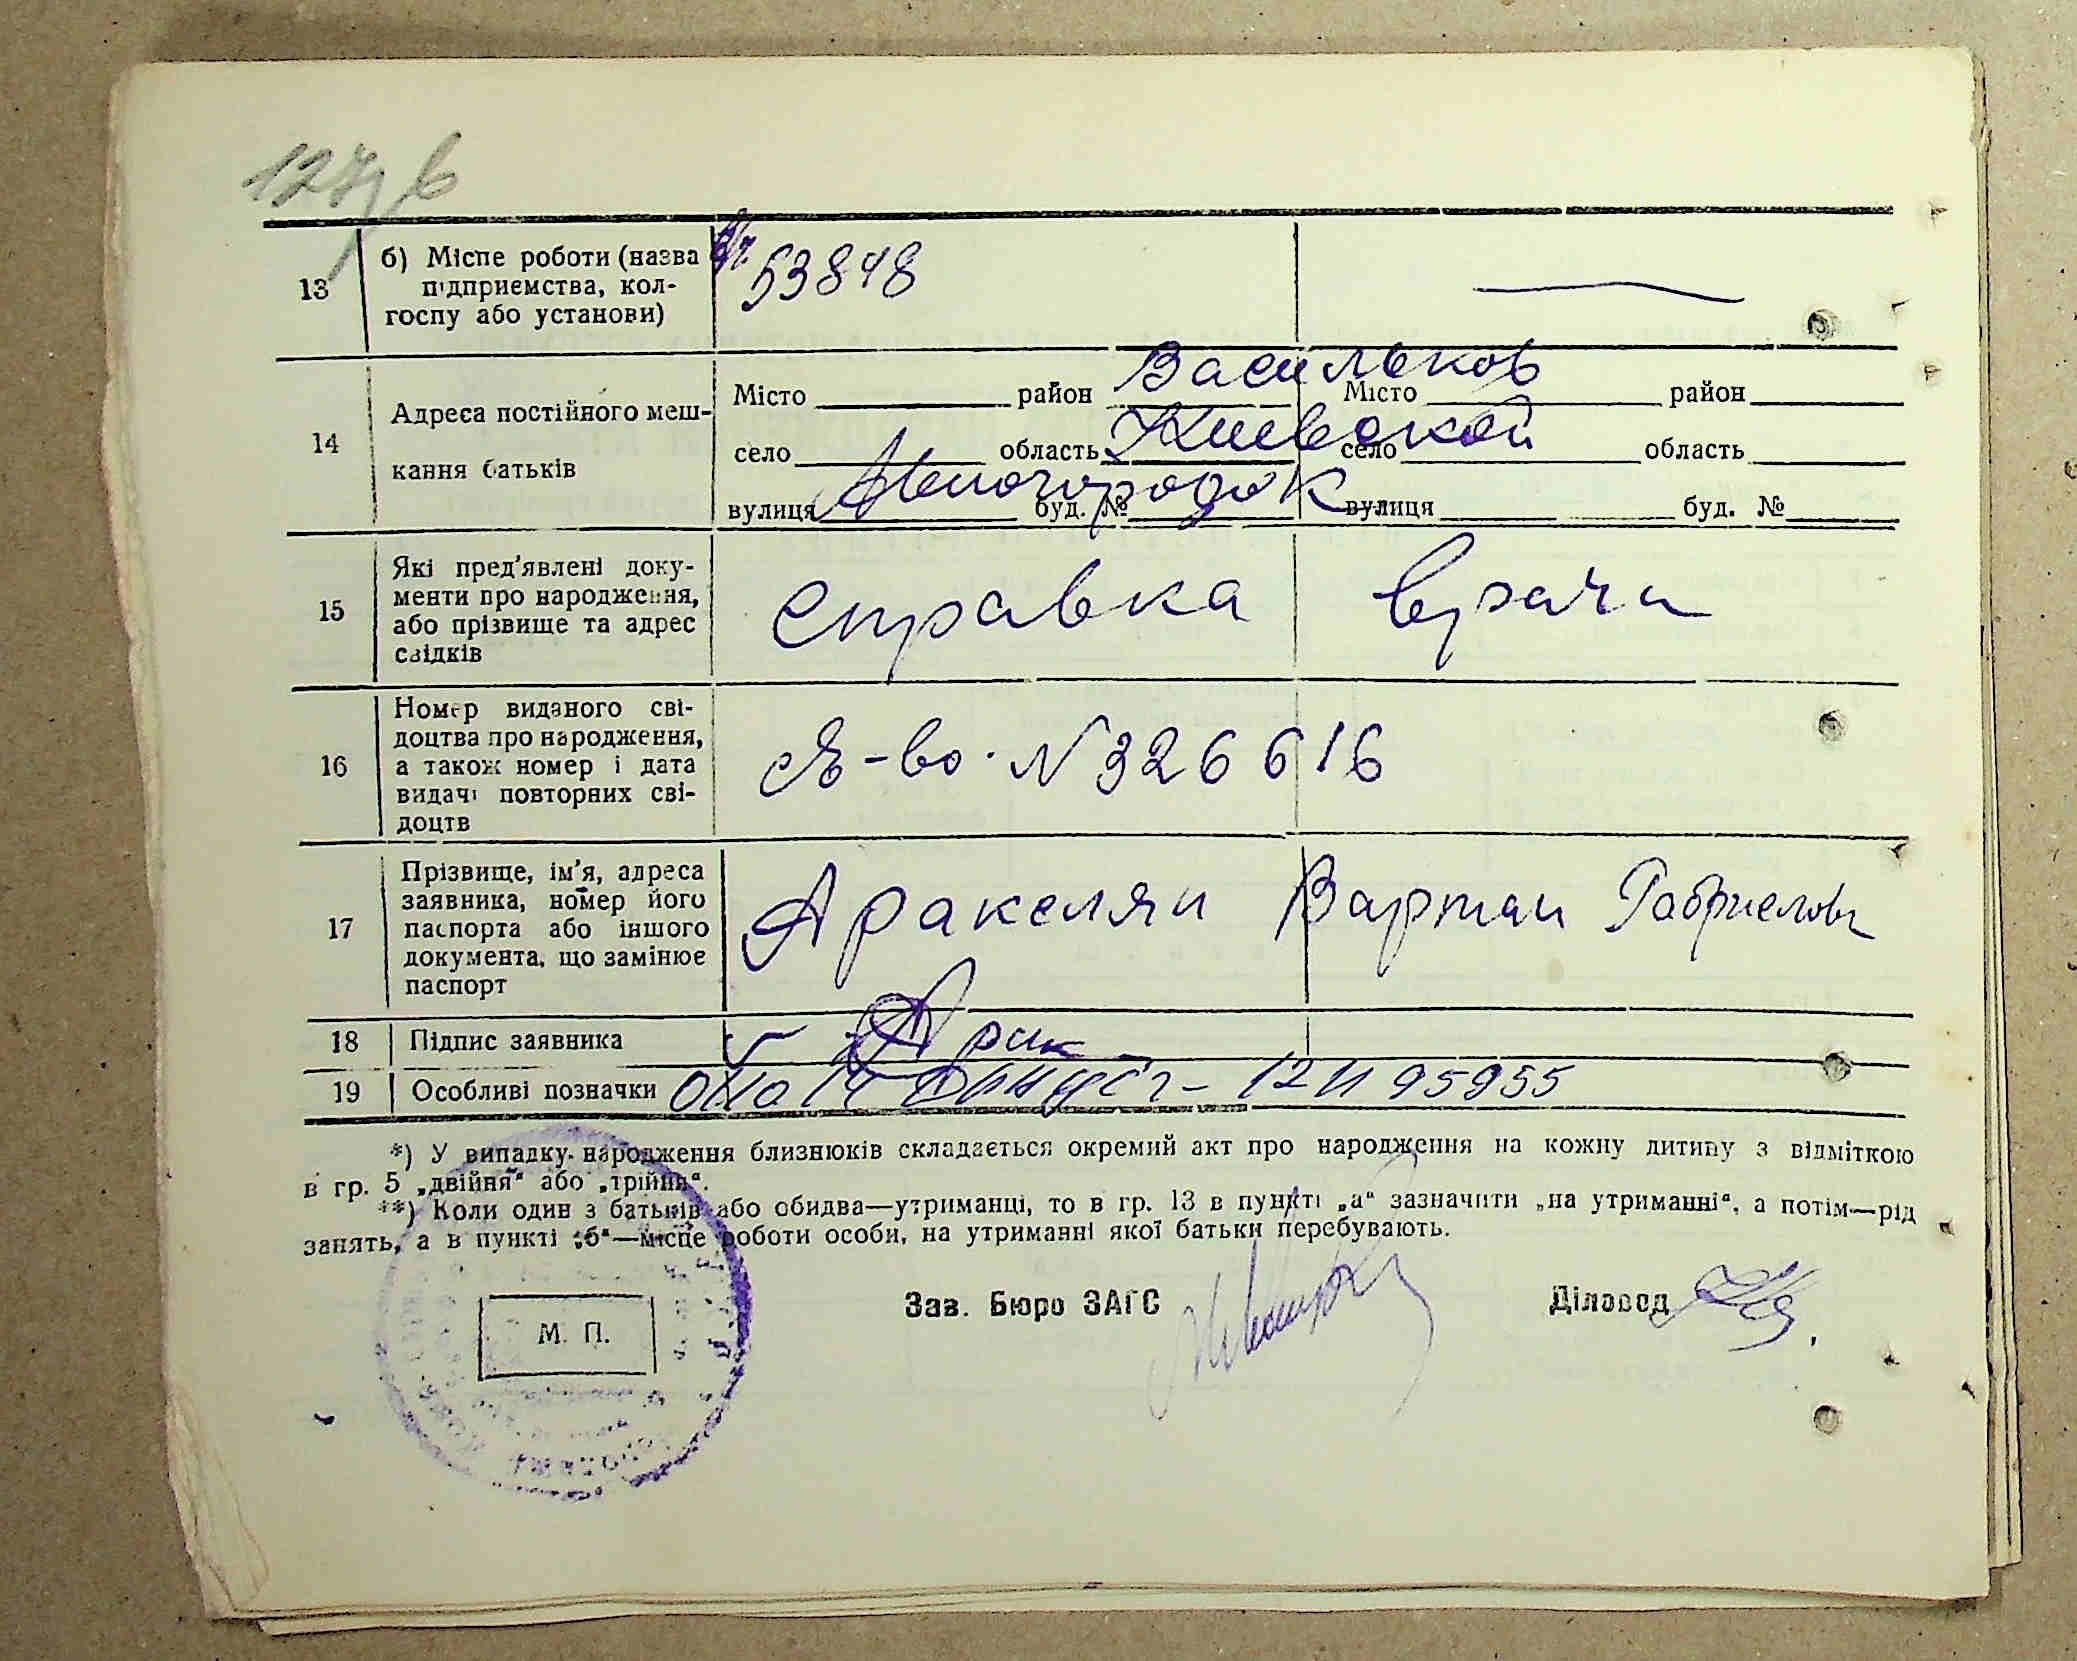 13
б) Місце роботи (назва
підприємства, кол-
госпу або установи)
в/ч 53848
14
Адреса постійного меш-
кання батьків
Місто район Васильков Місто район
село область Киевской село область
вулиця Авиогородок буд. № вулиця буд. №
15
Які пред'явлені доку-
менти про народження,
або прізвище та адрес
свідків
справка врача
16
Номер виданого сві-
доцтва про народження,
а також номер і дата
видачі повторних сві-
доцтв
св-во. N 326616
17
Прізвище, ім'я, адреса
заявника, номер його
паспорта або іншого
документа, що замінює
паспорт
Аракелян Вартан Габриелов
18 Підпис заявника
19 Особливі позначки
*) У випадку народження близнюків складається окремий акт про народження на кожну дитину з відміткою
в гр. 5 „двійня“ або „трійня“.
**) Коли один з батьків або обидва—утриманці, то в гр. 13 в пункті „а“ зазначити „на утриманні“, а потім—рід
занять, а в пункті „б“—місце роботи особи, на утриманні якої батьки перебувають.
Зав. Бюро ЗАГС Діловод
М. П.